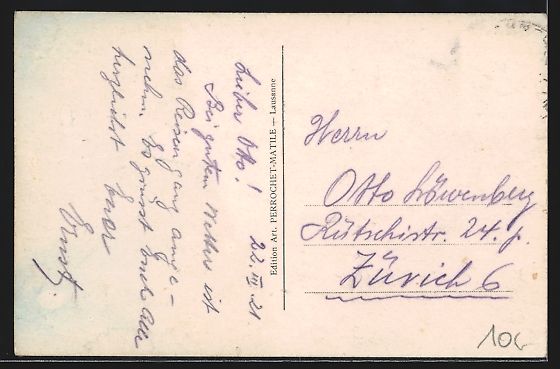 Lieber Otto! 22. VII 21
Bei gutem Wetter ist
das Reisen ganz ange-
nehm. Es grüsst Euch Alle
herzlichst Euer
Ernst.
Edition Art. PERROCHET-MATILE — Lausanne
Herrn
Otto Löwenberg
Rütschistr. 24. p.
Zürich 6